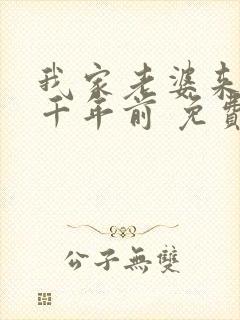 我家老婆来
千年前 免費
公子無雙